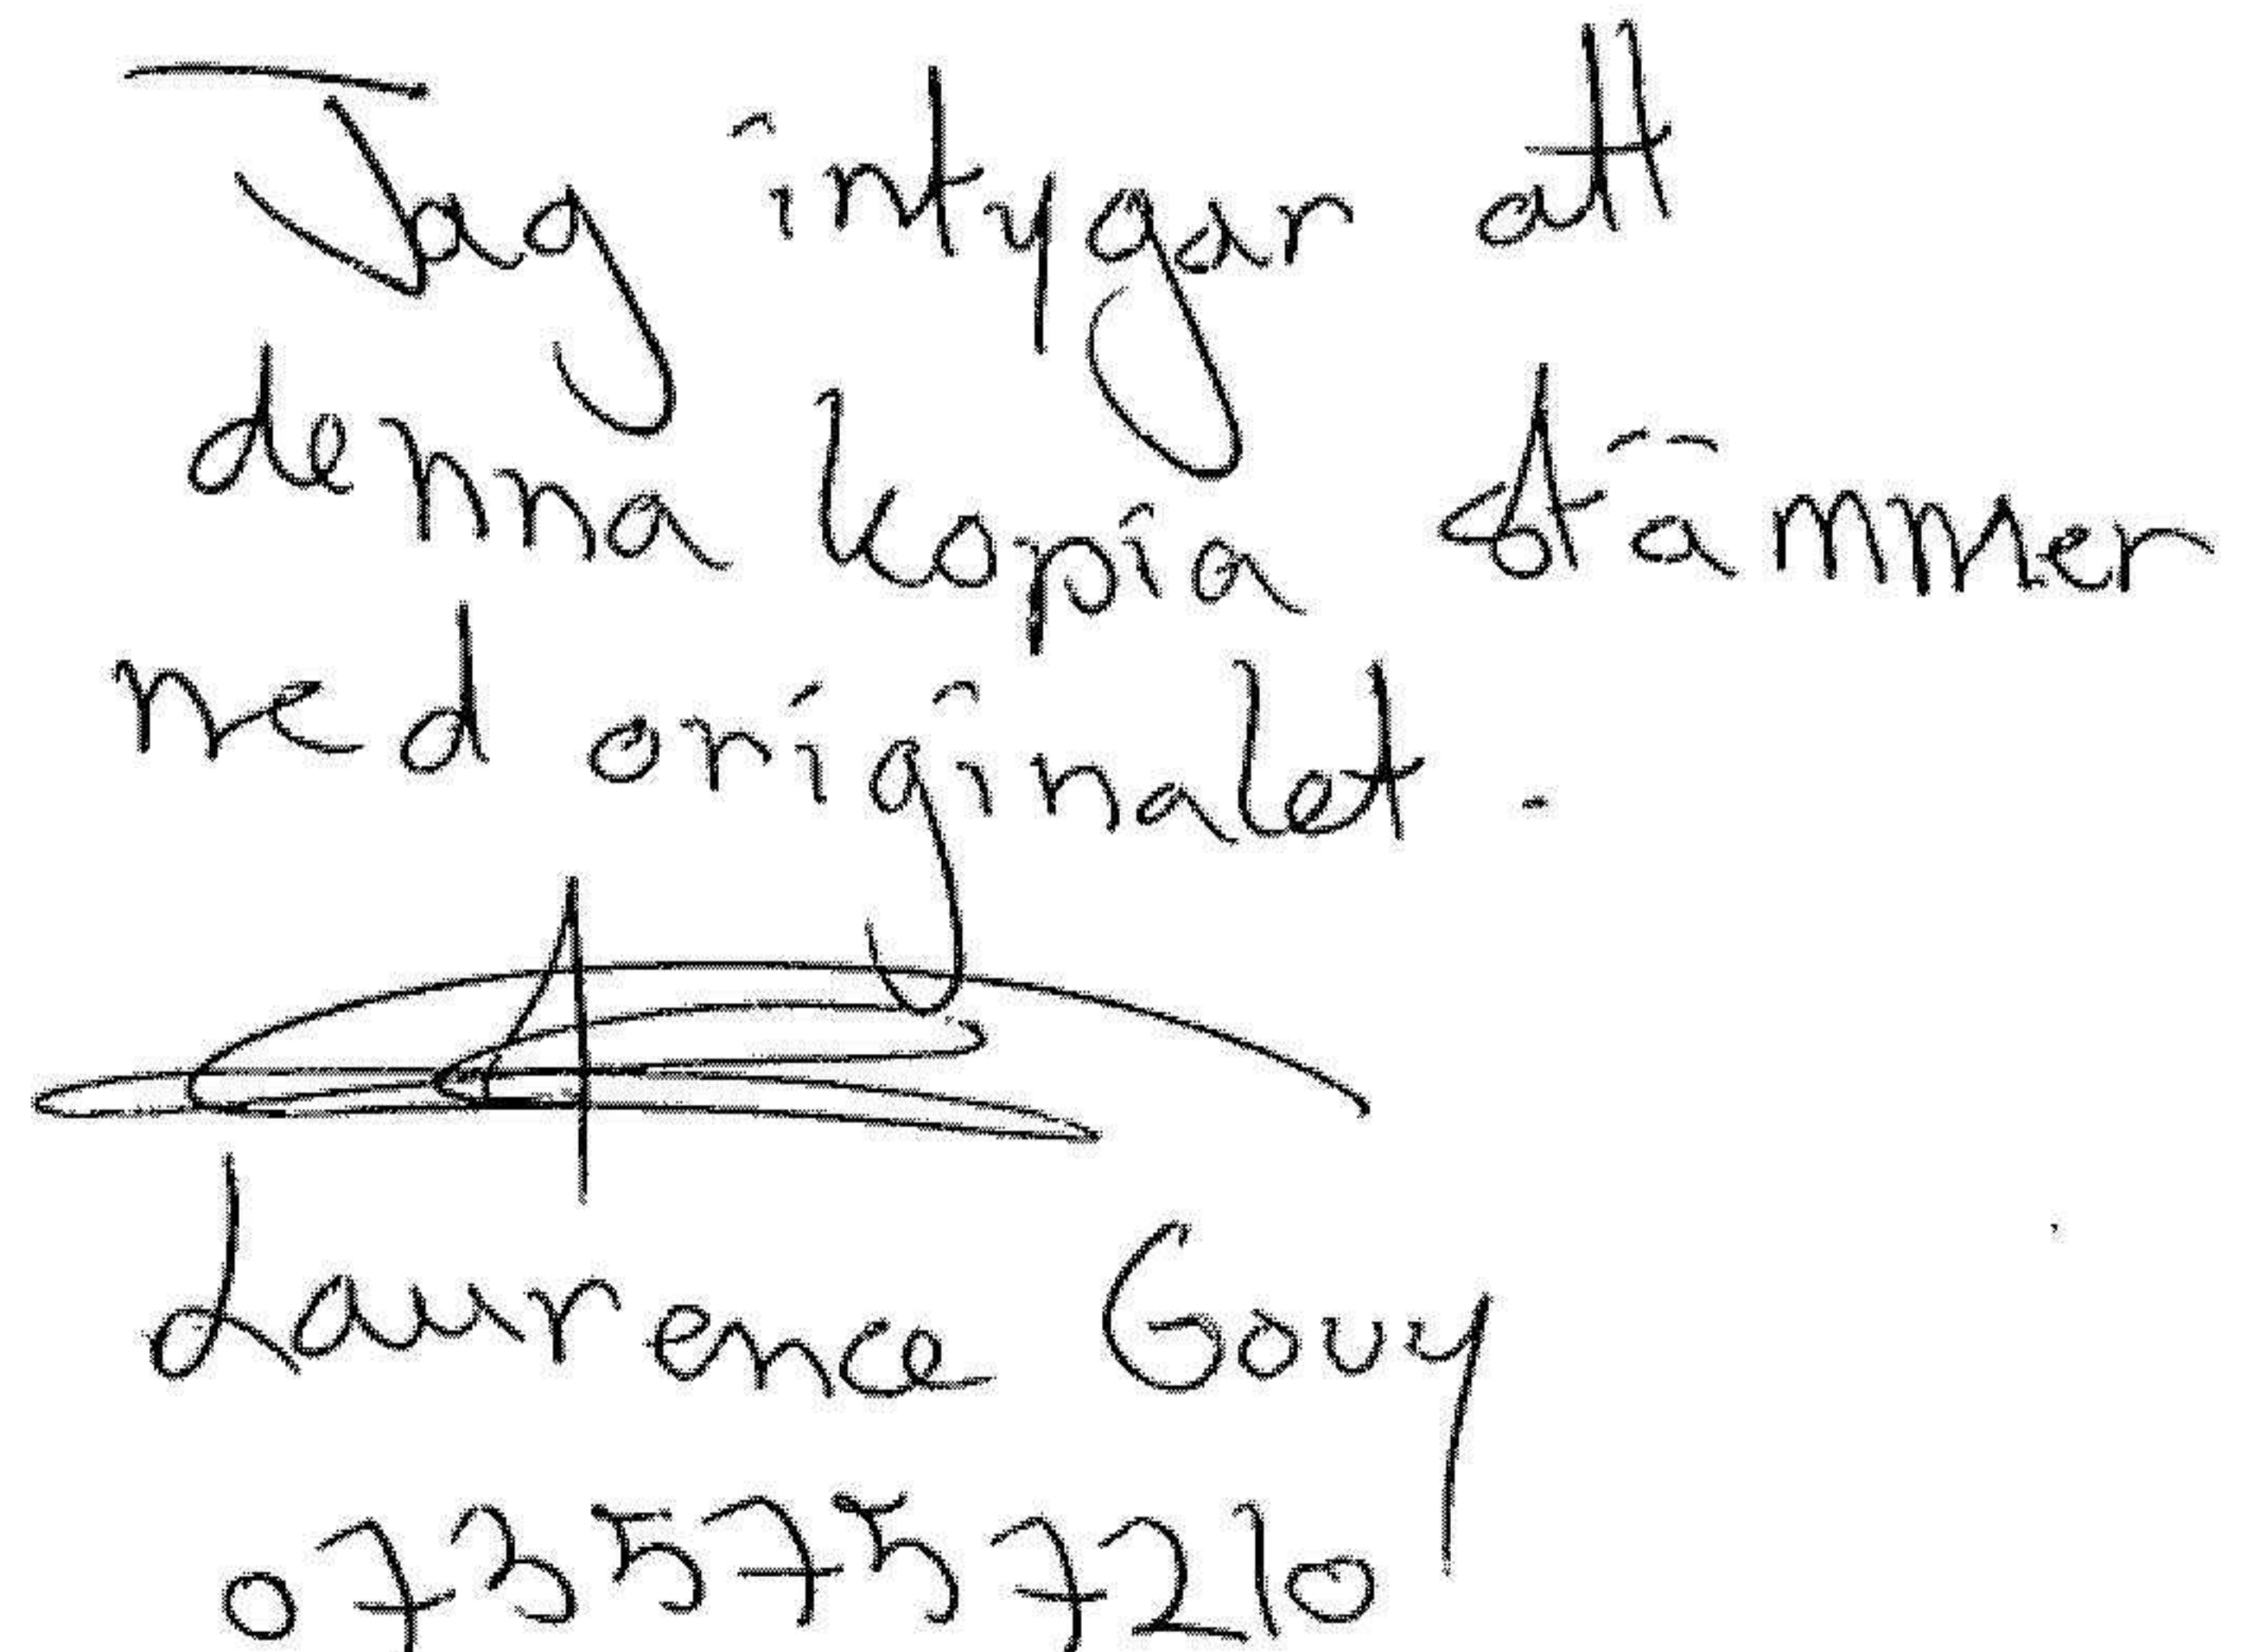 Jag intygar att
denna kopia stämmer
med originalet.
Laurence Gouy
0735757210